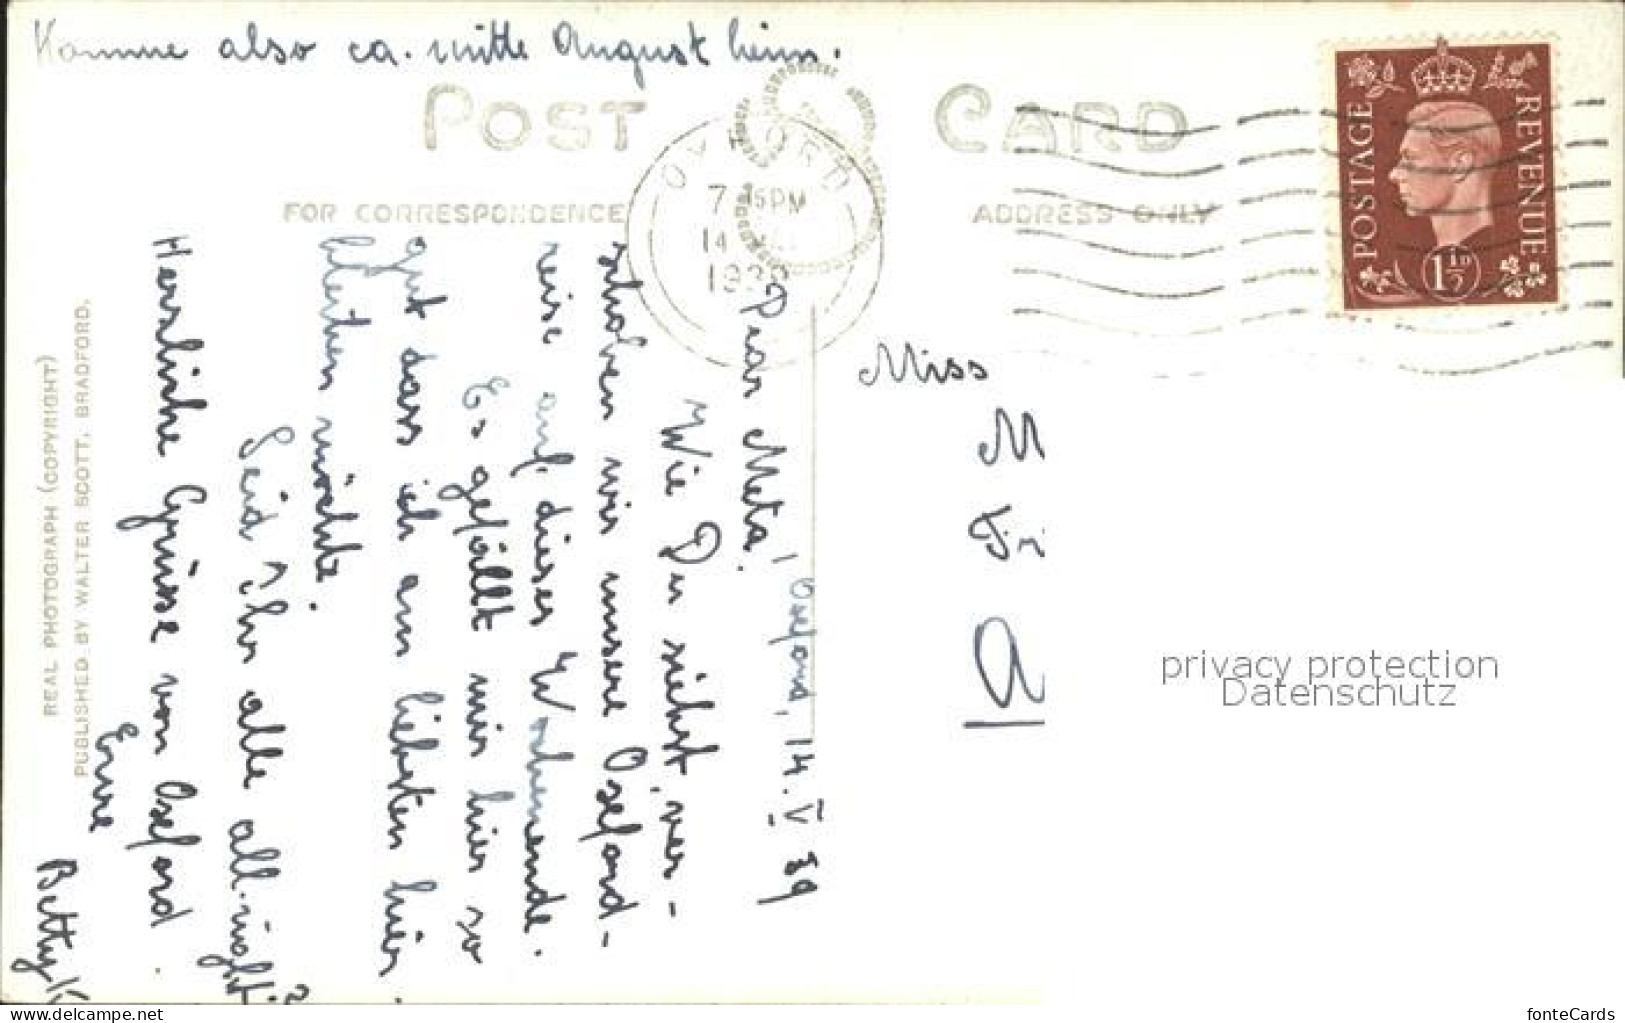 Komme also ca. mitte August heim.
POST CARD
FOR CORRESPONDENCE
ADDRESS ONLY
OXFORD
7 15 PM
14
1939
POSTAGE
REVENUE
1½D
Oxford, 14. V 39
Dear Meta!
Wie Du siehst, ver-
schoben wir unsere Oxford-
reise auf dieses Wochenende.
Es gefällt mir hier so
gut dass ich am liebsten hier
bleiben möchte.
Seid Ihr alle all-right?
Herzliche Grüsse von Oxford
Eure
Betty K
REAL PHOTOGRAPH (COPYRIGHT)
PUBLISHED BY WALTER SCOTT, BRADFORD.
Miss
M
privacy protection
Datenschutz
www.delcampe.net
fonteCards